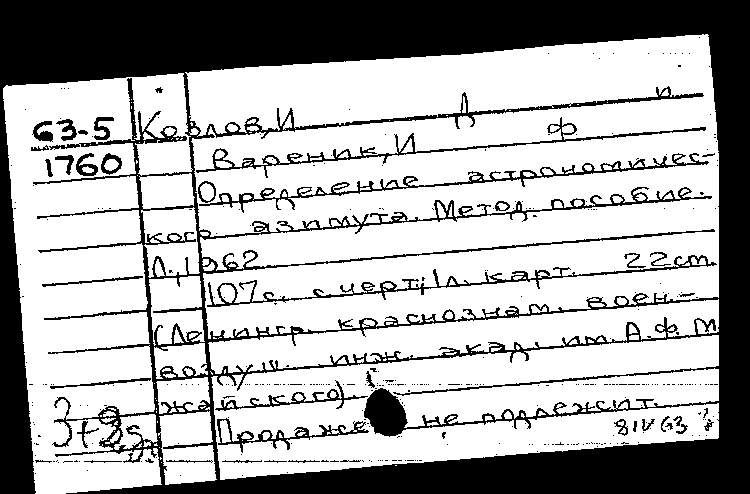 63-5 Козлов, И Д п
1760 Вареник, И Ф
Определение астрономичес-
кого азимута. Метод. пособие.
Л., 1962
107 с. с черт; 1л. карт. 22 cm.
(Ленингр. краснознам. воен.-
воздуш. инж. акад. им. А.Ф. М
жайского)
Продаже не подлежит.
8 IV 63